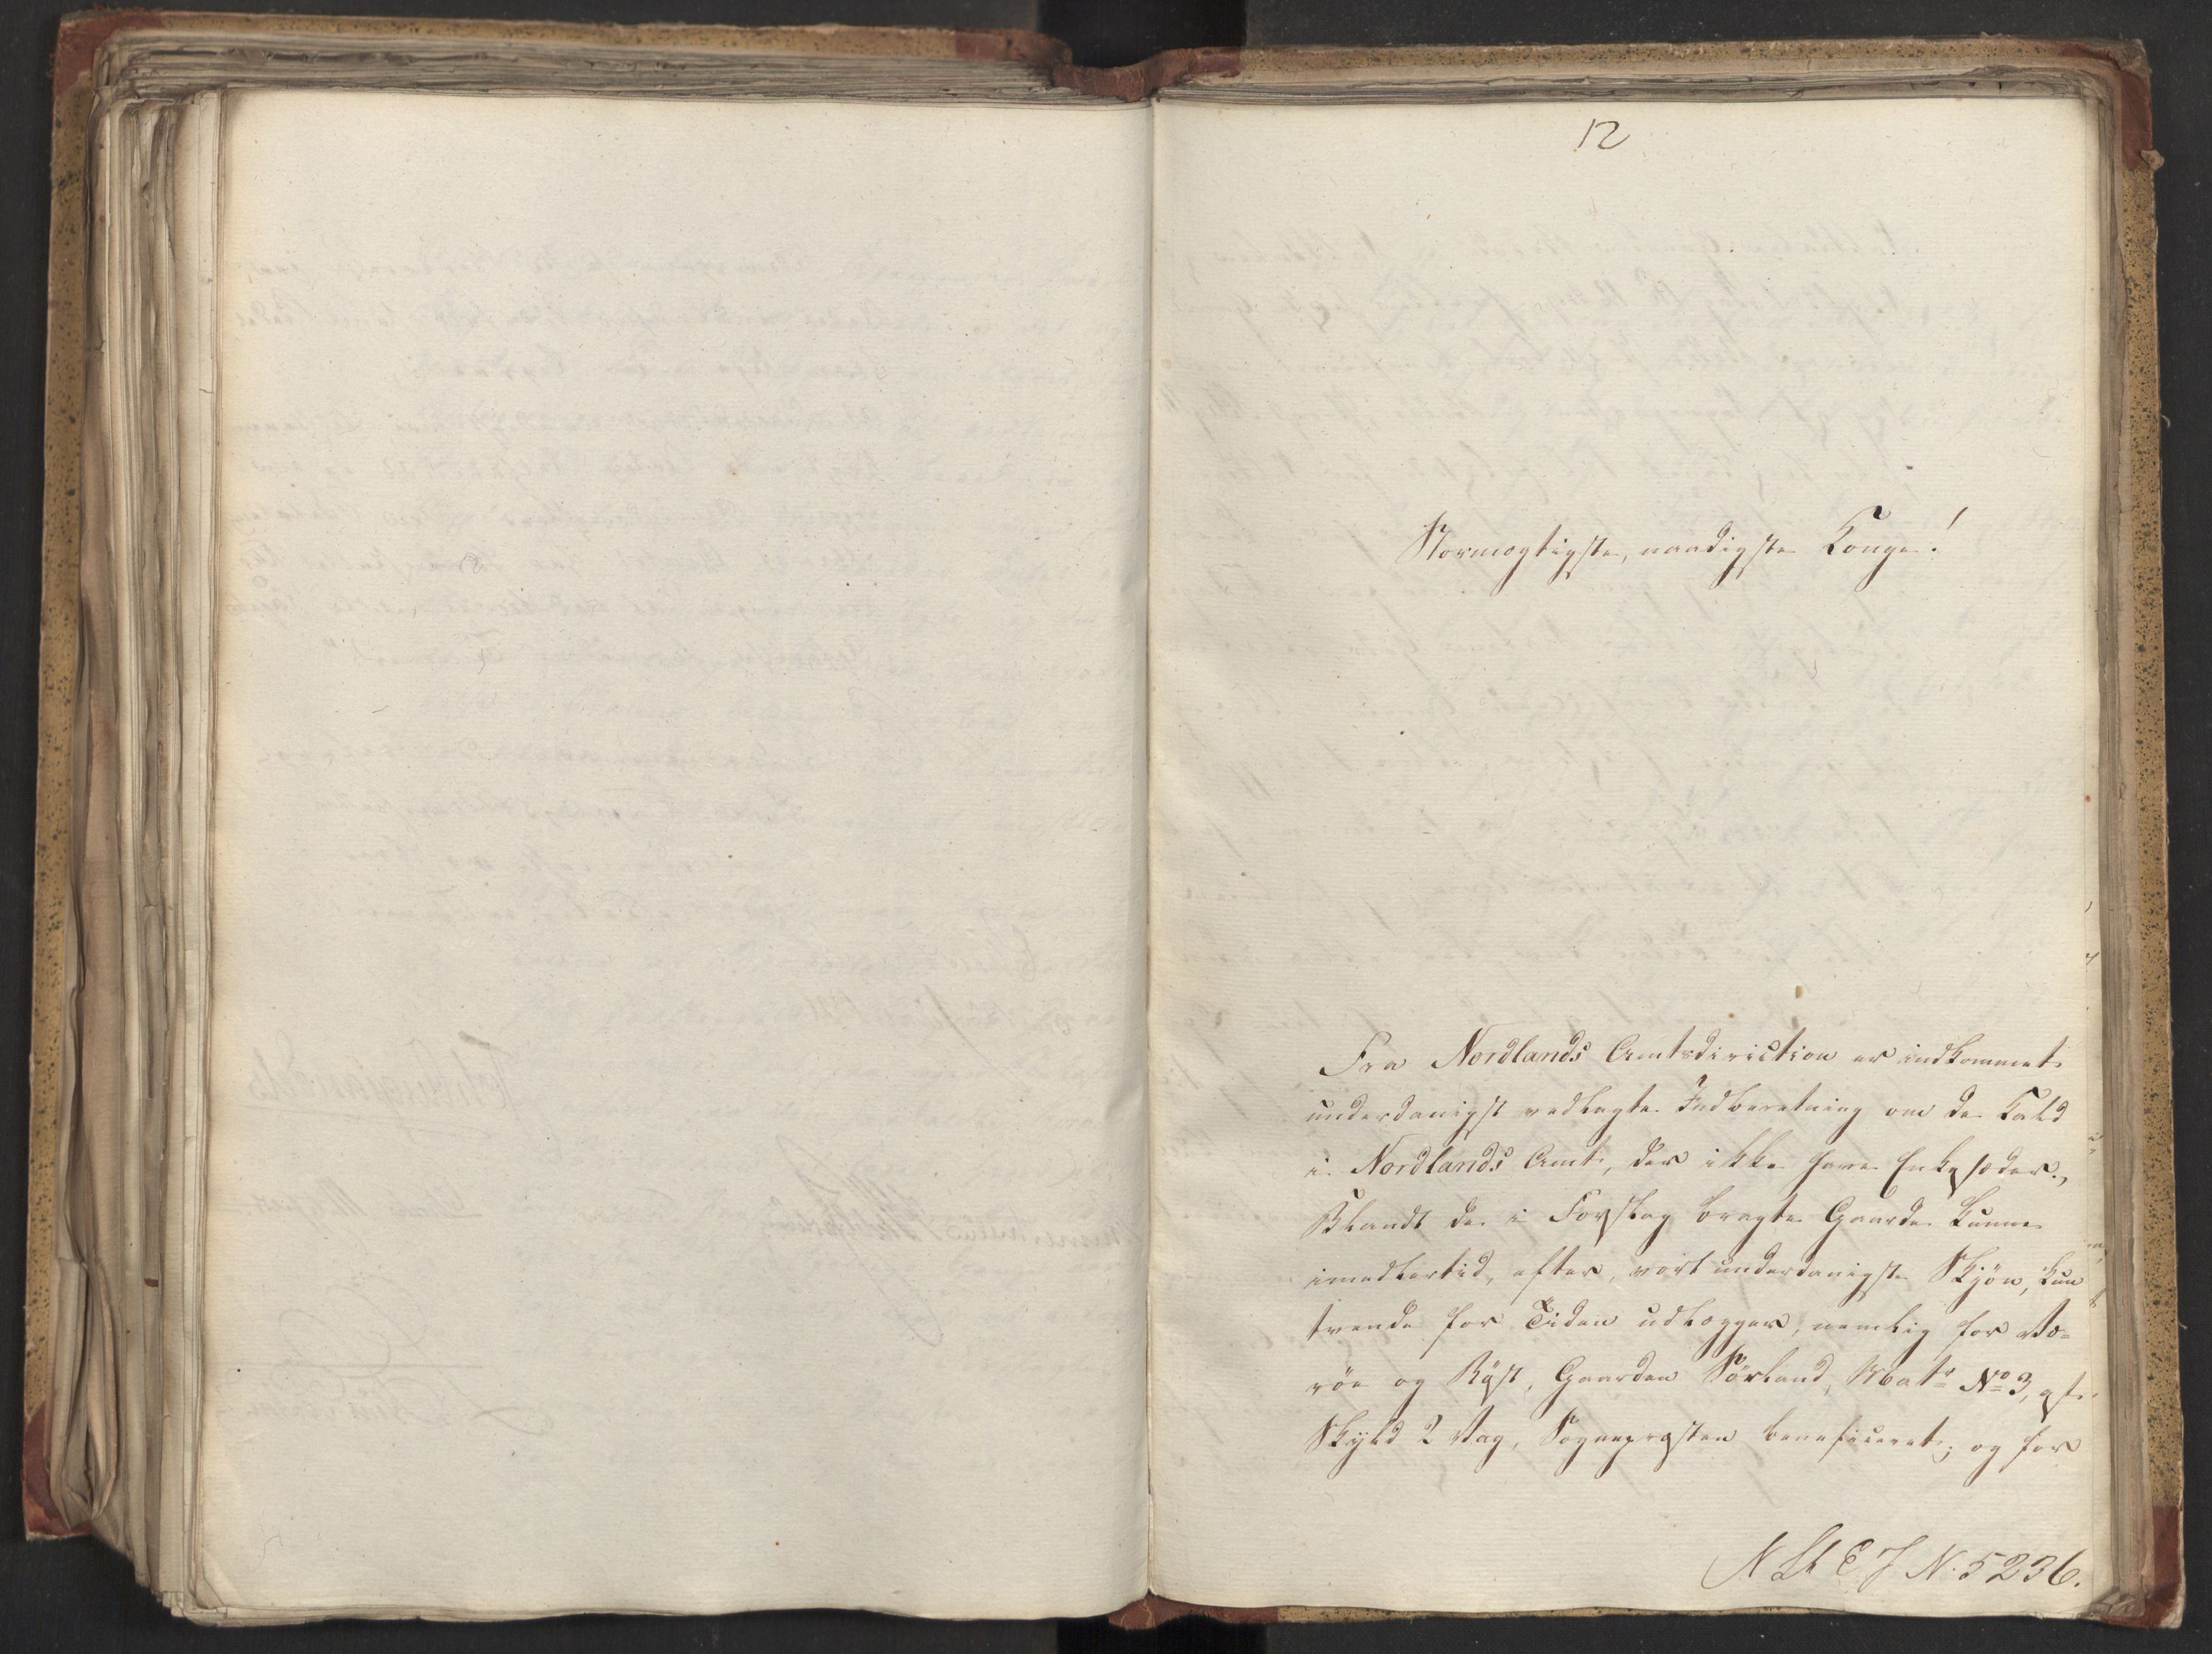 12
Stormægtigste, naadigste Konge!
Fra Nordlands Amtsdirection er indkommet
underdanigst vedlagte Indberetning om de Kald
i Nordlands Amt, der ikke have Enkesæder.,
Blandt de i Forslag bragte Gaarde kunne
imedlertid, efter vort underdanigste Skjön, kun
tvende for Tiden udlægges, nemlig for Væ-
röe og Röst, Gaarden Sörland, Matr No 3, af
Skyld 2 Vog, Sognepræsten beneficeret; og for
N. 5236.